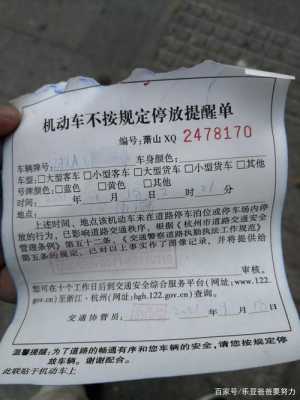 机动车不按规定停放提醒单
编号:萧山 XQ 2478170
车辆牌号: 车身颜色:
车型:□大型客车 □小型客车 □大型货车 □小型货车 □其他
号牌颜色:□蓝色 □黄色 □其他
时间: 时 分
地点:
上述时间、地点该机动车未在道路停车泊位或停车场内停
放的行为,已影响道路交通秩序,根据《杭州市道路交通安全
管理条例》第五十二条、《交通警察道路执勤执法工作规范》
第五条的规定,已对以上事实作了图像记录,并将提供给
审核。
您可在十个工作日后到交通安全综合服务平台(网址:www.122.
gov.cn)至浙江·杭州(网址:hgh.122.gov.cn)查询。
交通协管员:
温馨提醒:为了道路的畅通有序和您车辆的安全,请您按规定停
放车辆。谢谢配合。
此联贴于机动车上
百家号/乐豆爸爸要努力